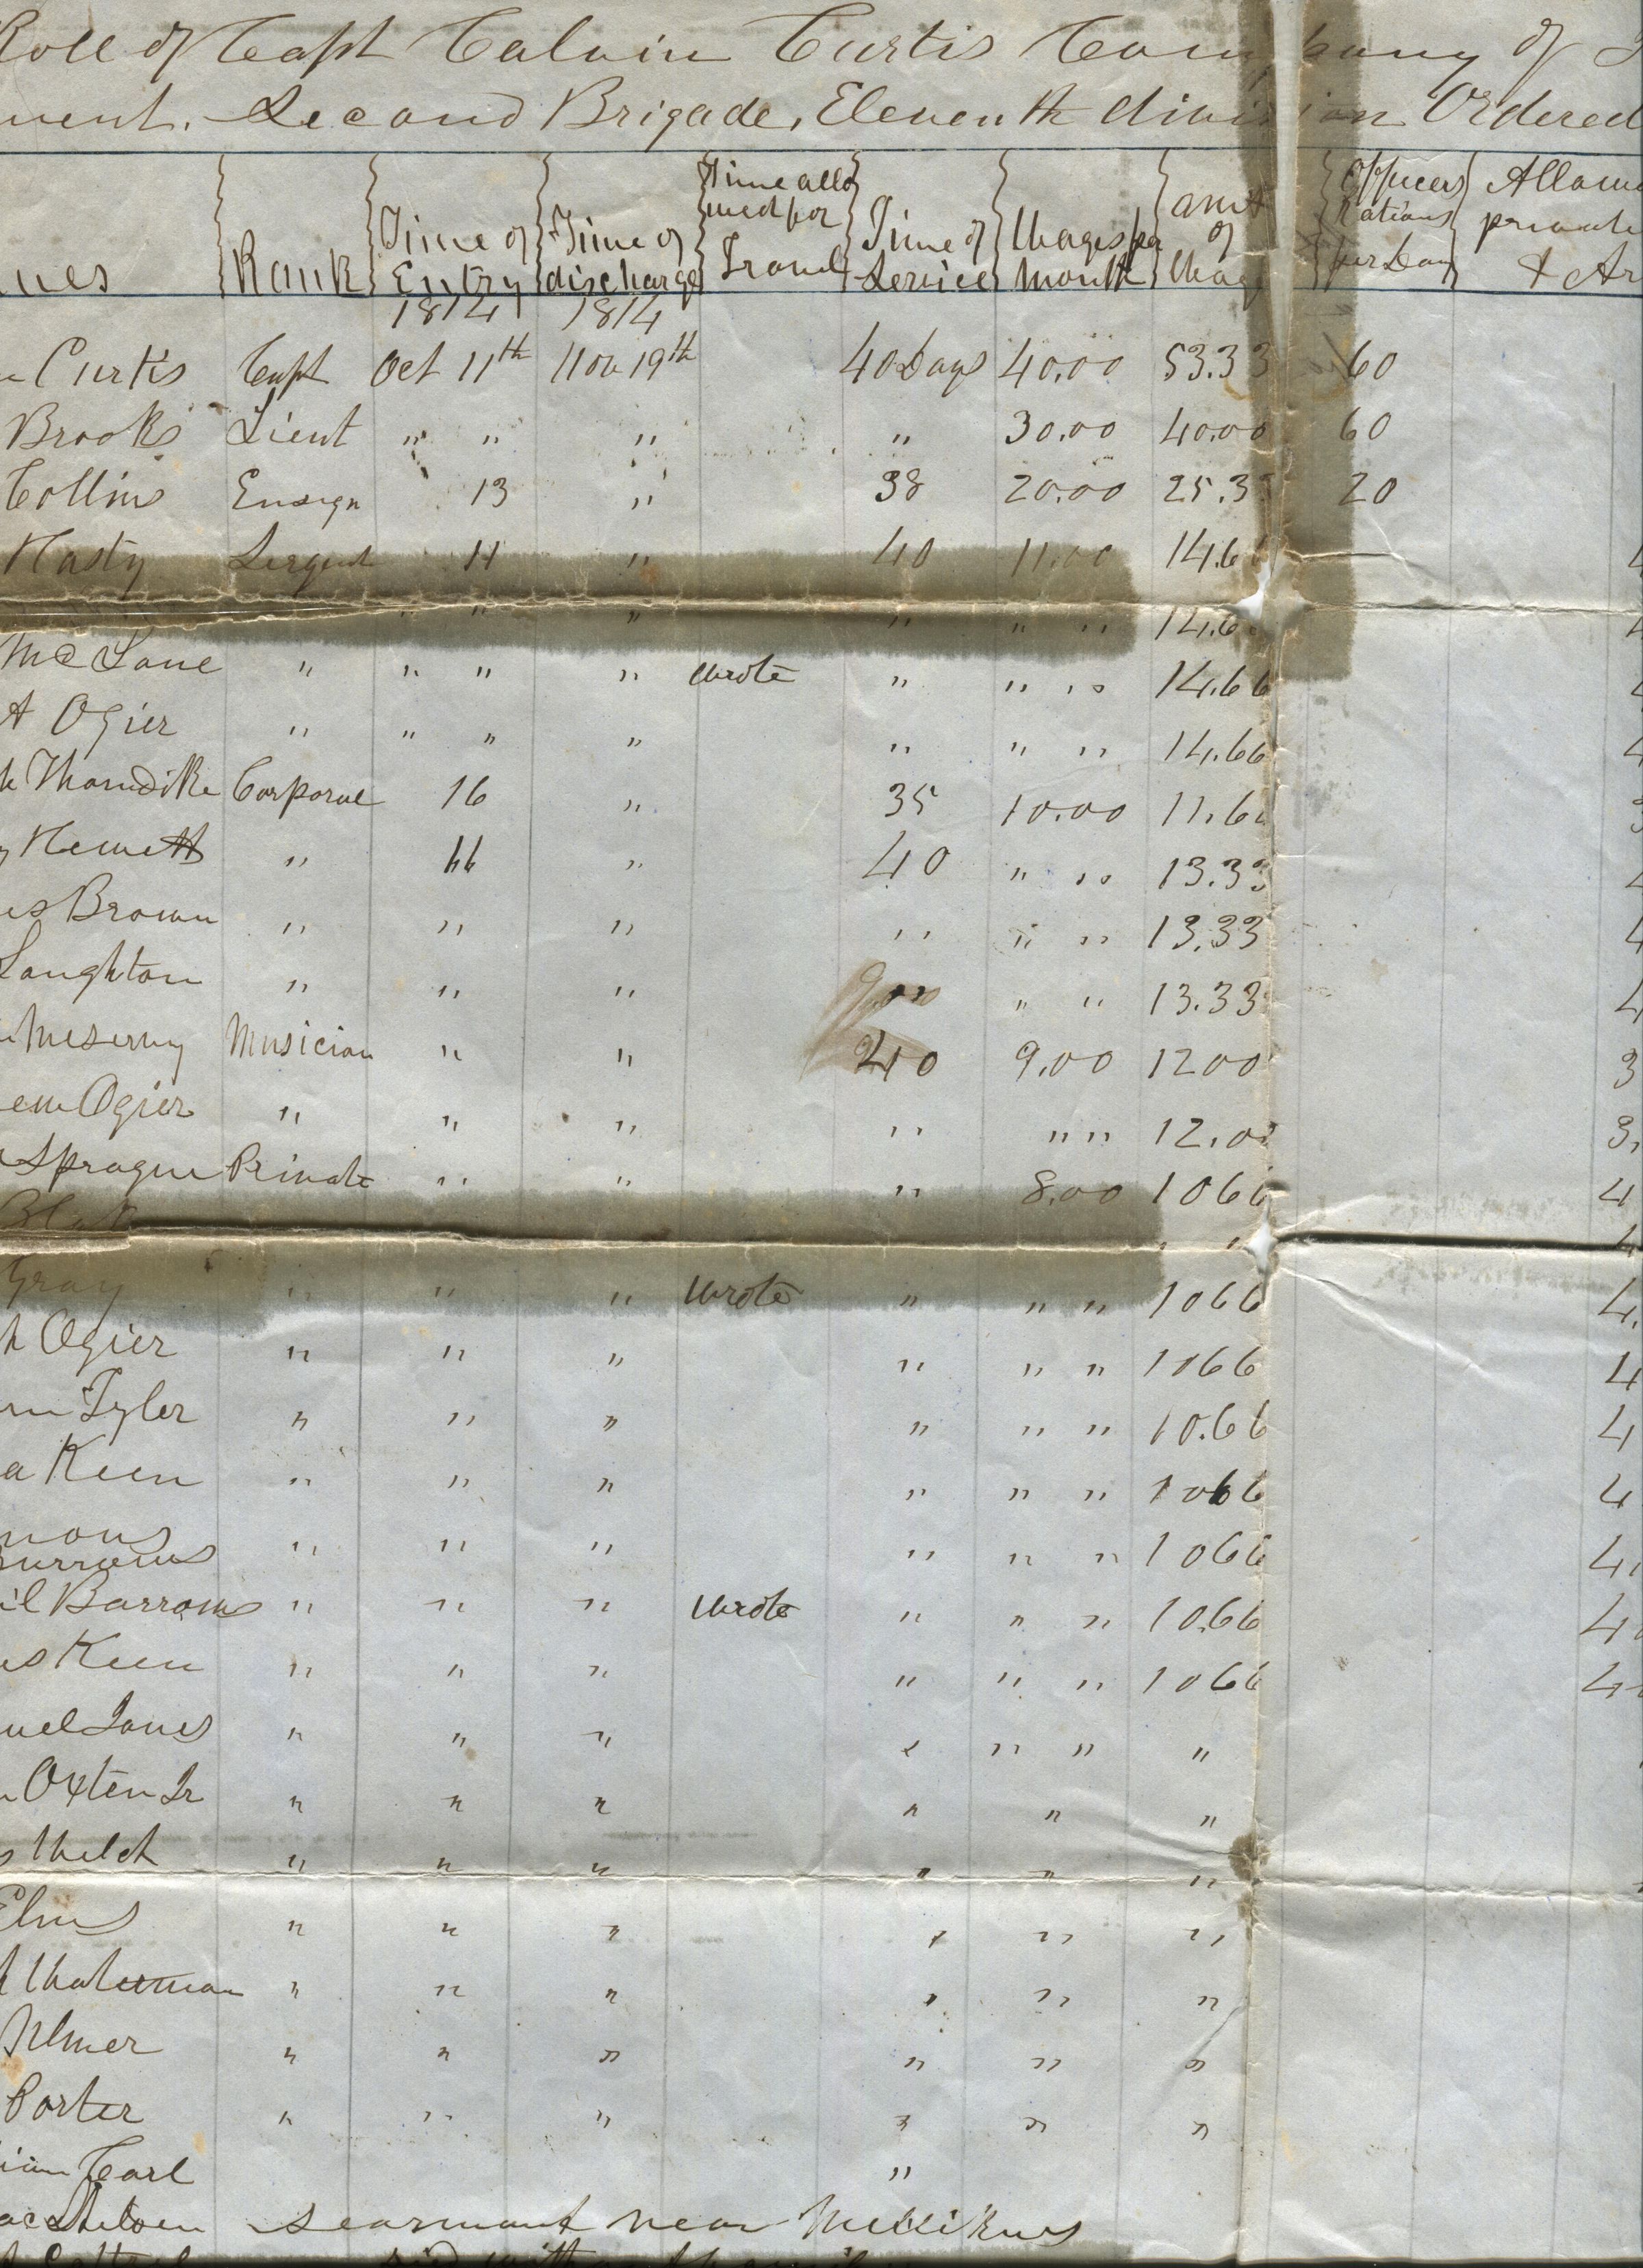 Roll of Capt Calvin Curtis Company of
ment. Second Brigade, Eleventh division Ordered
Rank Time of Entry Time of discharge Time allowed for Travel Time of Service Wages per Month amt of Wage Officers Rations per Day Allowe private & Ar
1814 1814
Curtis Capt Oct 11th Nov 19th 40 Days 40.00 53.33 60
Brooks Lieut " " " " 30.00 40.00 60
Collins Ensign 13 " 38 20.00 25.3 20
Hasty Sergent 11 " 40 11.00 14.6
" " " " " " 14.6
McLane " " " " Wrote " " " 14.66
A Ogier " " " " " " " 14.66
Thorndike Corporal 16 " 35 10.00 11.6
Hewett " 11 " 40 " " 13.33
es Brown " " " " " " 13.33 4
Laughton " " " " " 13.33 4
Meservy Musician " " 40 9.00 1200 3
em Ogier " " " " " " 12.0 3.
Sprague Private " " " 8.00 1066 4
"
Gray " " " Wrote " " " 1066 4.
h Ogier " " " " " " 1066 4
Tyler " " " " " " 10.66 4
a Keen " " " " " " 1066 4
mons
" " " " " " 1066 4
il Barrows " " " Wrote " " " 10.66 4
es Keen " " " " " " 1066 4
uel Jones " " " " " "
Oxten Jr " " " " " "
s Welch " " " " " "
Elms " " " " " "
h Waterman " " " " " "
Ulmer " " " " " "
Porter " " " " " "
iam Carl "
searmont near Millikens